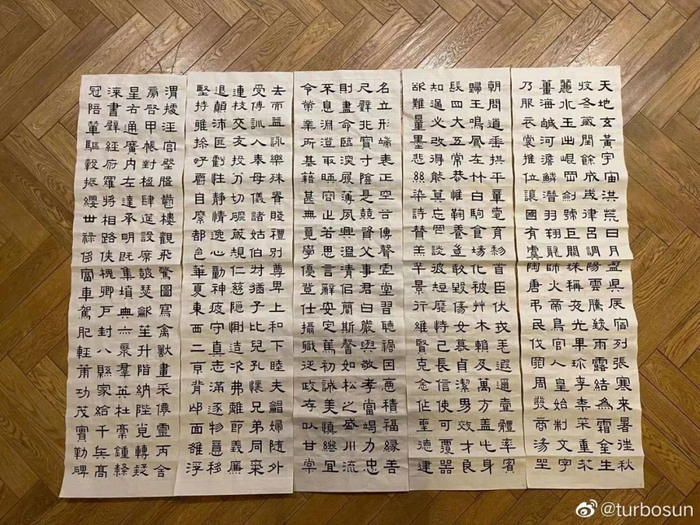 天地玄黃宇宙洪荒日月盈昃辰宿列張寒來暑往秋
收冬藏閏餘成歲律呂調陽雲騰致雨露結為霜金生
麗水玉出崑岡劍號巨闕珠稱夜光果珍李柰菜重芥
薑海鹹河淡鱗潛羽翔龍師火帝鳥官人皇始制文字
乃服衣裳推位讓國有虞陶唐弔民伐罪周發商湯坐
朝問道垂拱平章愛育黎首臣伏戎羌遐邇壹體率賓
歸王鳴鳳在竹白駒食場化被草木賴及萬方蓋此身
髮四大五常恭惟鞠養豈敢毀傷女慕貞潔男效才良
知過必改得能莫忘罔談彼短靡恃己長信使可覆器
欲難量墨悲絲染詩讚羔羊景行維賢克念作聖德建
名立形端表正空谷傳聲虛堂習聽禍因惡積福緣善
尺璧非寶寸陰是競資父事君曰嚴與敬孝當竭力忠
則盡命臨深履薄夙興溫凊似蘭斯馨如松之盛川流
不息淵澄取映容止若思言辭安定篤初誠美慎終宜
令榮業所基籍甚無竟學優登仕攝職從政存以甘棠
去而益詠樂殊貴賤禮別尊卑上和下睦夫唱婦隨外
受傅訓入奉母儀諸姑伯叔猶子比兒孔懷兄弟同氣
連枝交友投分切磨箴規仁慈隱惻造次弗離節義廉
退顛沛匪虧性靜情逸心動神疲守真志滿逐物意移
堅持雅操好爵自縻都邑華夏東西二京背邙面洛浮
渭據涇宮殿盤鬱樓觀飛驚圖寫禽獸畫彩仙靈丙舍
傍啓甲帳對楹肆筵設席鼓瑟吹笙升階納陛弁轉疑
星右通廣內左達承明既集墳典亦聚羣英杜稾鍾隸
漆書壁經府羅將相路俠槐卿戶封八縣家給千兵高
冠陪輦驅轂振纓世祿侈富車駕肥輕策功茂實勒碑
@turbosun